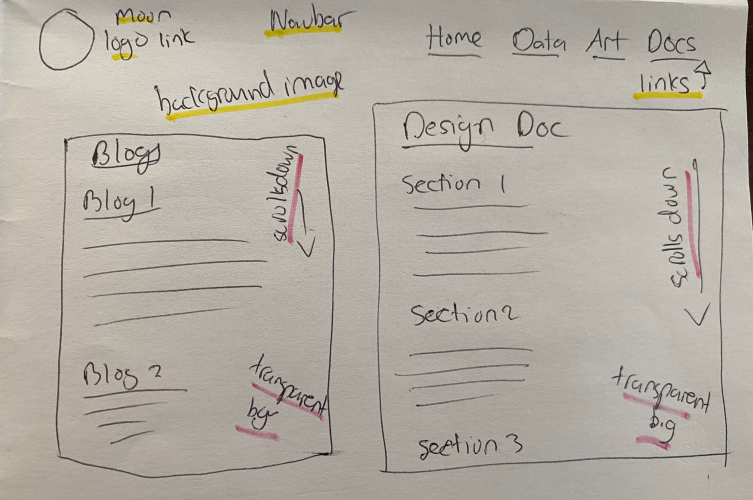 Moon
logo link
Navbar
Home Data Art Docs
links
background image
Blogs
Blog 1
scrollsdown
Blog 2
transparent
bg
Design Doc
Section 1
scrolls down
Section 2
transparent
big
section 3